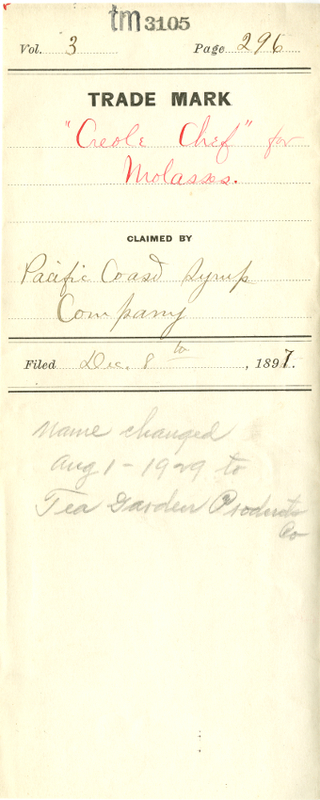 tm 3105
Vol. 3 Page 296
TRADE MARK
"Creole Chef" for
Molasses.
CLAIMED BY
Pacific Coast Syrup
Company
Filed Dec. 8th, 1897.
Name changed
Aug 1 - 1929 to
Tea Garden Products
Co